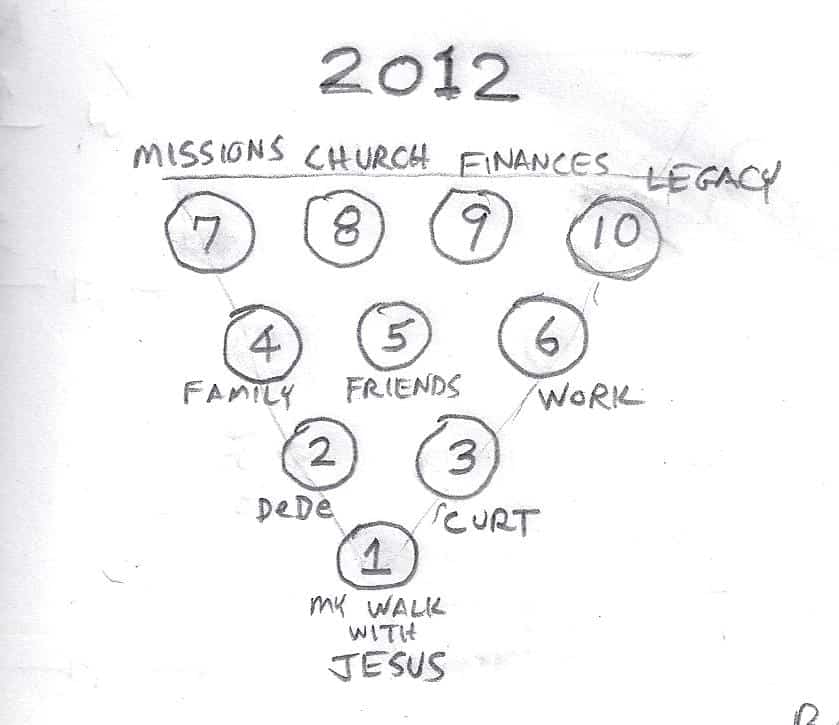 2012
MISSIONS CHURCH FINANCES LEGACY
7 8 9 10
4 5 6
FAMILY FRIENDS WORK
2 3
DeDe CURT
1
MY WALK
WITH
JESUS